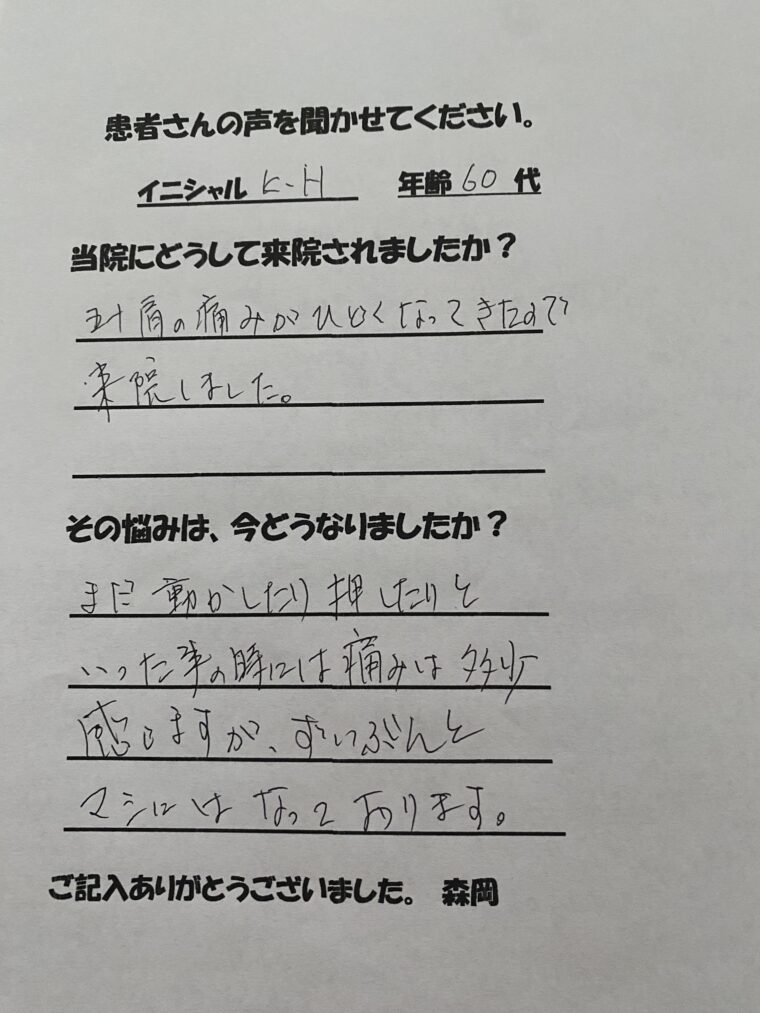 患者さんの声を聞かせてください。
イニシャル K-H 年齢 60 代
当院にどうして来院されましたか？
肩の痛みがひどくなってきたので
来院しました。
その悩みは、今どうなりましたか？
まだ動かしたり押したりと
いった事の時には痛みは多少
感じますが、ずいぶんと
マシにはなっております。
ご記入ありがとうございました。 森岡